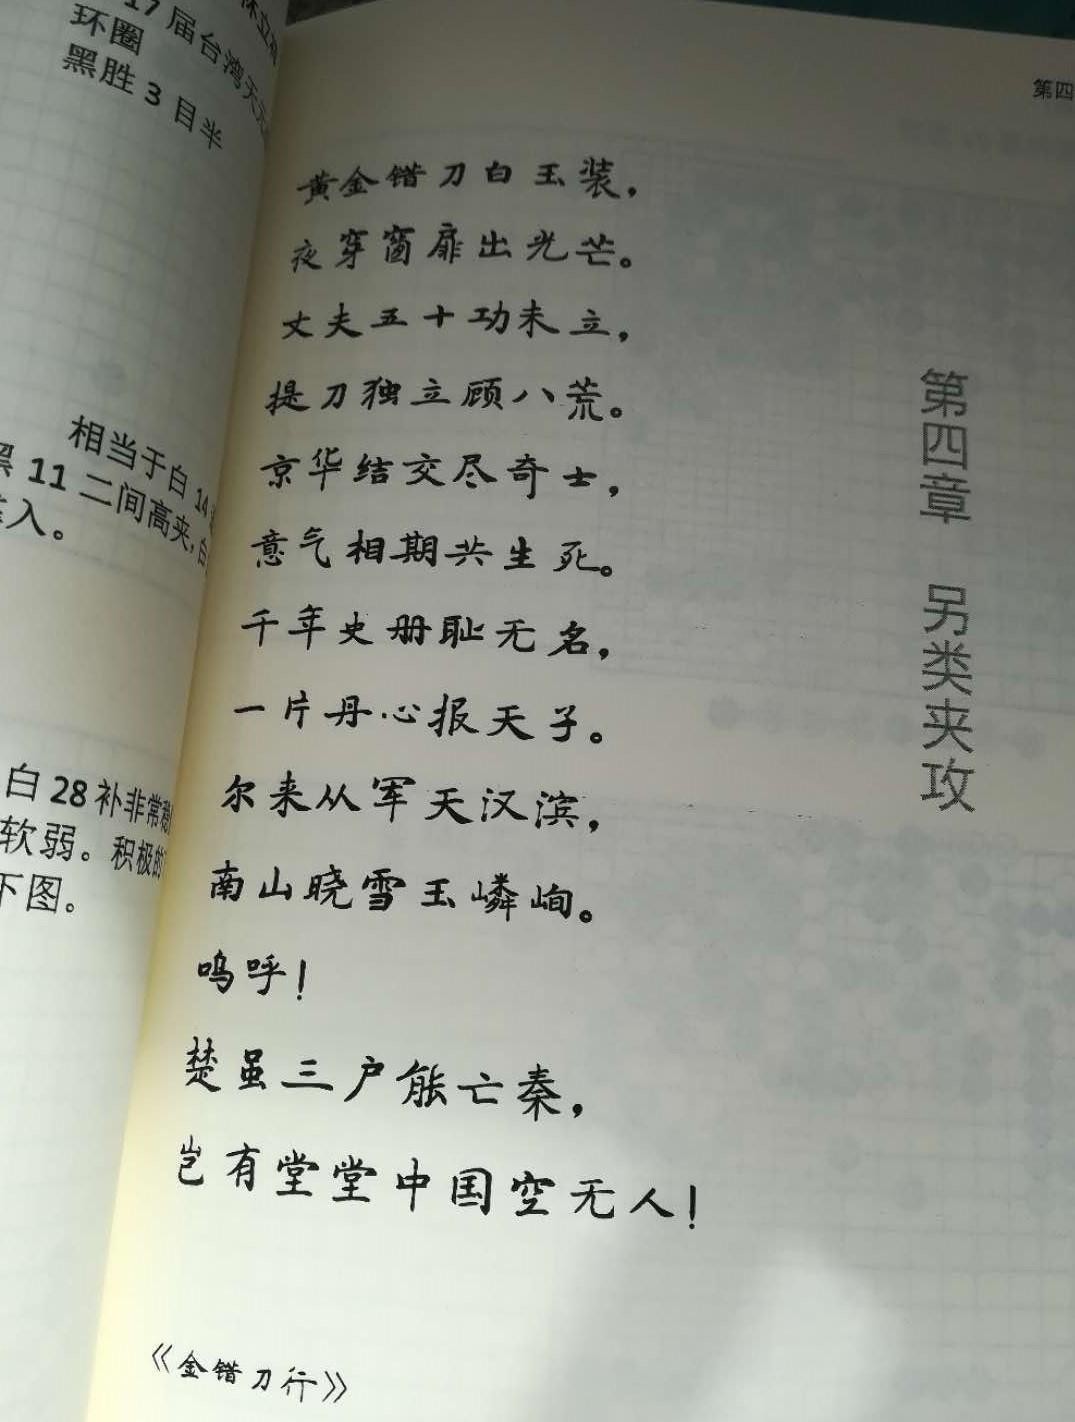 17届台湾天元
环圈
黑胜3目半
相当于白14
黑11二间高夹,白
入。
白28补非常
软弱。积极的
下图。
第四
黄金错刀白玉装，
夜穿窗扉出光芒。
丈夫五十功未立，
提刀独立顾八荒。
京华结交尽奇士，
意气相期共生死。
千年史册耻无名，
一片丹心报天子。
尔来从军天汉滨，
南山晓雪玉嶙峋。
呜呼！
楚虽三户能亡秦，
岂有堂堂中国空无人！
《金错刀行》
第四章 另类夹攻